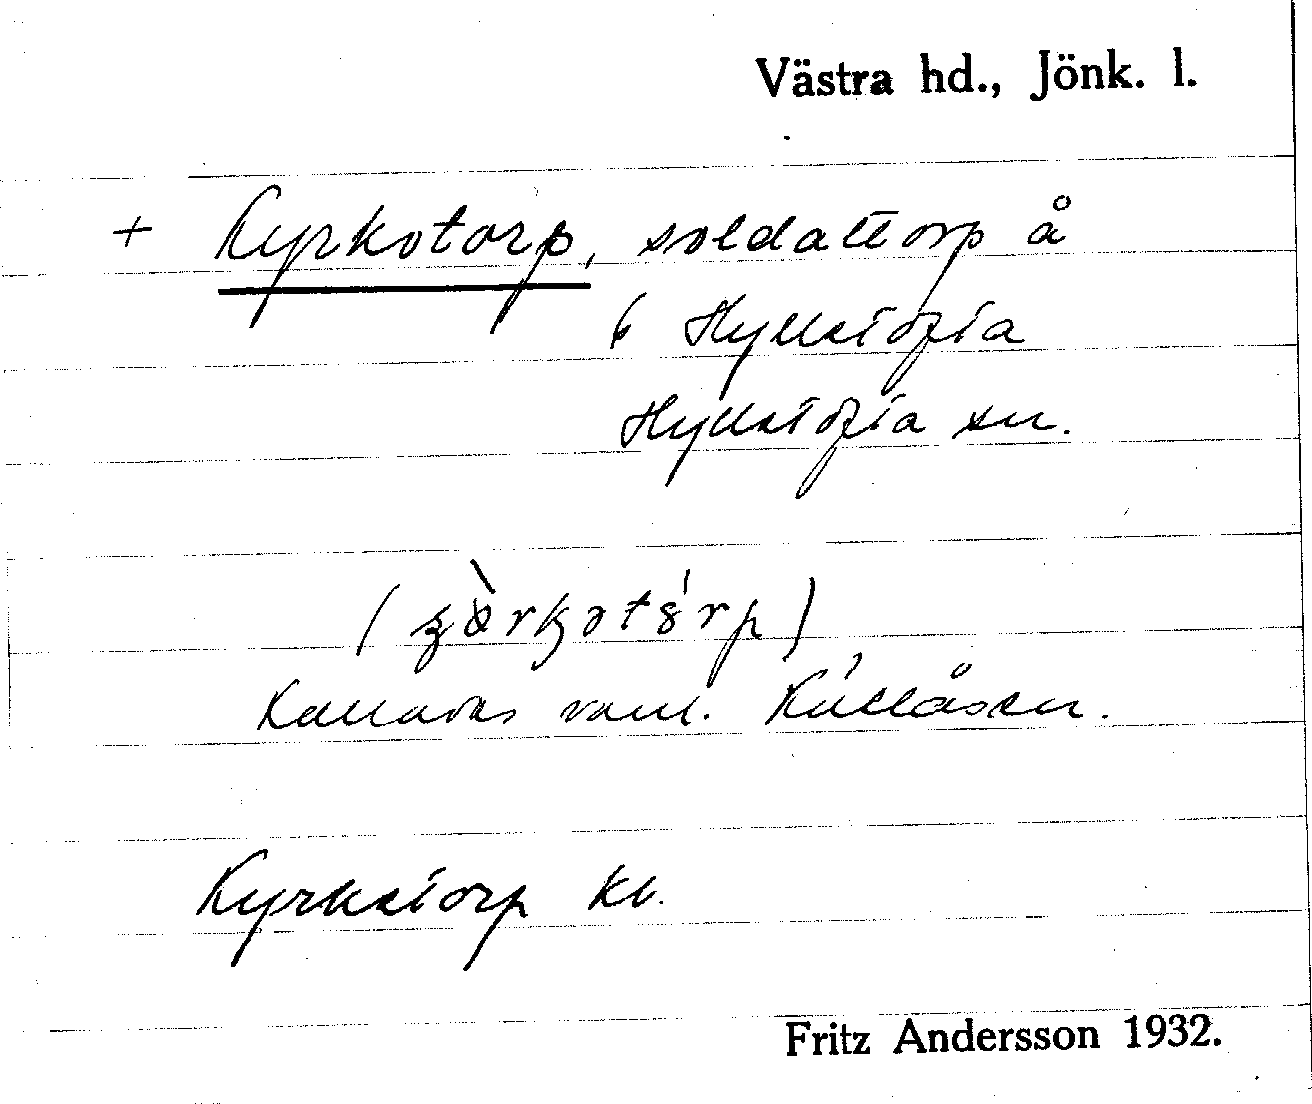 Västra hd., Jönk. l.
+ Kyrkotorp, soldattorp å
Hyllstofta
Hyllstofta sn.
Kallades vanl. Kúllåsen.
Kyrkstorp kb.
Fritz Andersson 1932.